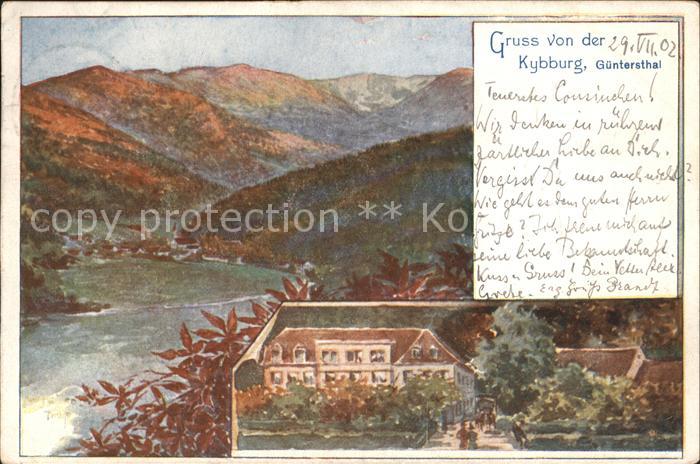 Gruss von der 29. VII. 02
Kybburg, Güntersthal
Teuerstes Cousinchen!
Wir denken in rührend
zärtlicher Liebe an Dich.
Vergisst Du uns auch nicht?
Wie geht es dem guten Herrn
? Ich freue mich auf
seine liebe Bekanntschaft.
Kuss u. Gruss! Dein Vetter
Brandt
copy protection ** Ko